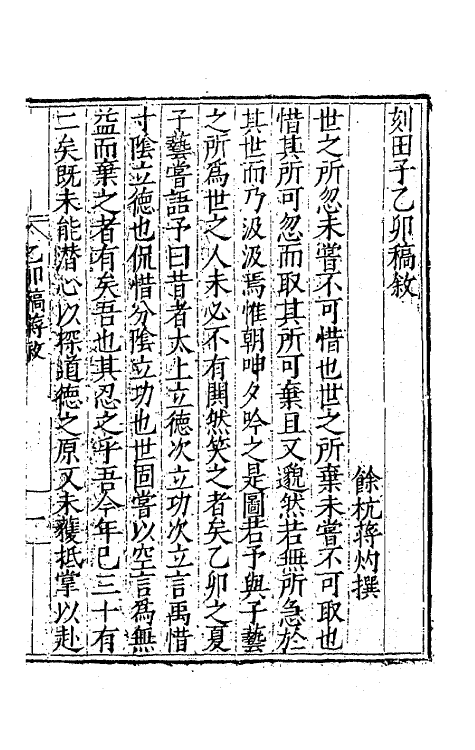 刻田子乙卯稿敘
餘杭蒋灼撰
世之所忽未嘗不可惜也世之所棄未嘗不可取也
惜其所可忽而取其所可棄且又邈然若無所急於
其世而乃汲汲焉惟朝呻夕吟之是圖若予與子藝
之所爲世之人未必不有閧然笑之者矣乙卯之夏
子藝嘗語予曰昔者太上立德次立功次立言禹惜
寸陰立德也侃惜分陰立功也世固嘗以空言爲無
益而棄之者有矣吾也其忍之乎吾今年已三十有
二矣既未能潜心以探道德之原又未獲抵掌以赴
乙卯稿蒋敘
一